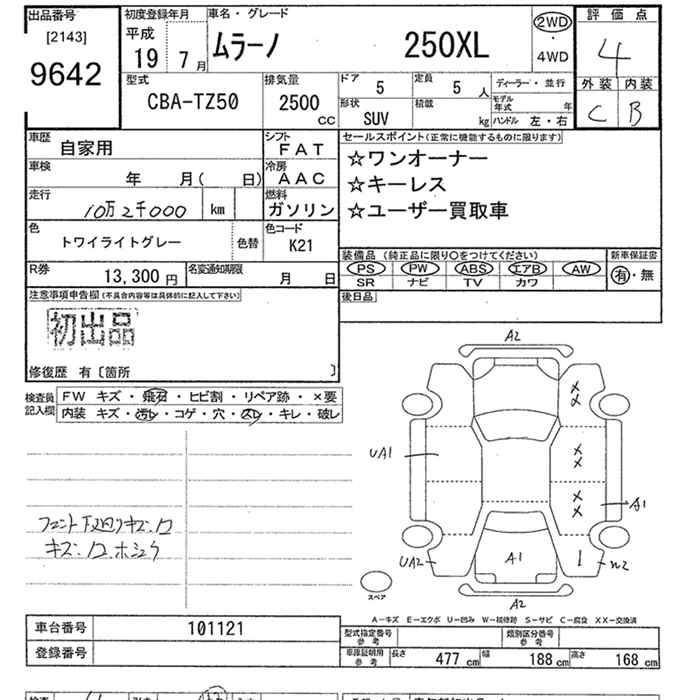 出品番号
[2143]
9642
初度登録年月
平成
19 7月
車名・グレード
ムラーノ 250XL
2WD
4WD
評価点
4
外装 内装
C B
型式
CBA-TZ50
排気量
2500
CC
ドア
5
定員
5 人
形状
SUV
積載
kg
ディーラー・並行
モデル年式 年
ハンドル 左・右
車歴
自家用
シフト
FAT
車検
年 月( 日)
冷房
AAC
走行
10万2千000 km
燃料
ガソリン
色
トワイライトグレー
色替
色コード
K21
セールスポイント(正常に機能するものに限ります)
☆ワンオーナー
☆キーレス
☆ユーザー買取車
装備品 (純正品に限り○をつけてください)
PS PW ABS エアB AW
SR ナビ TV カワ
新車保証書
有・無
R券
13,300 円
名変通知期限
月 日
後日品
注意事項申告欄(不具合内容等は具体的に記入して下さい)
初出品
修復歴 有〔箇所 〕
検査員記入欄
FW キズ・飛石・ヒビ割・リペア跡・×要
内装 キズ・汚レ・コゲ・穴・スレ・キレ・破レ
フロント下廻りキズ.ワ
キズ.ワ.ホシュウ
A2
×
×
UA1
×
×
×
×
A1
UA2
A1
W2
A2
スペア
A-キズ E-エクボ U-凹み W-補修跡 S-サビ C-腐食 XX-交換済
車台番号
101121
登録番号
型式指定番号
参考
類別区分番号
参考
車庫証明用
参考
長さ 477 cm
幅 188 cm
高さ 168 cm